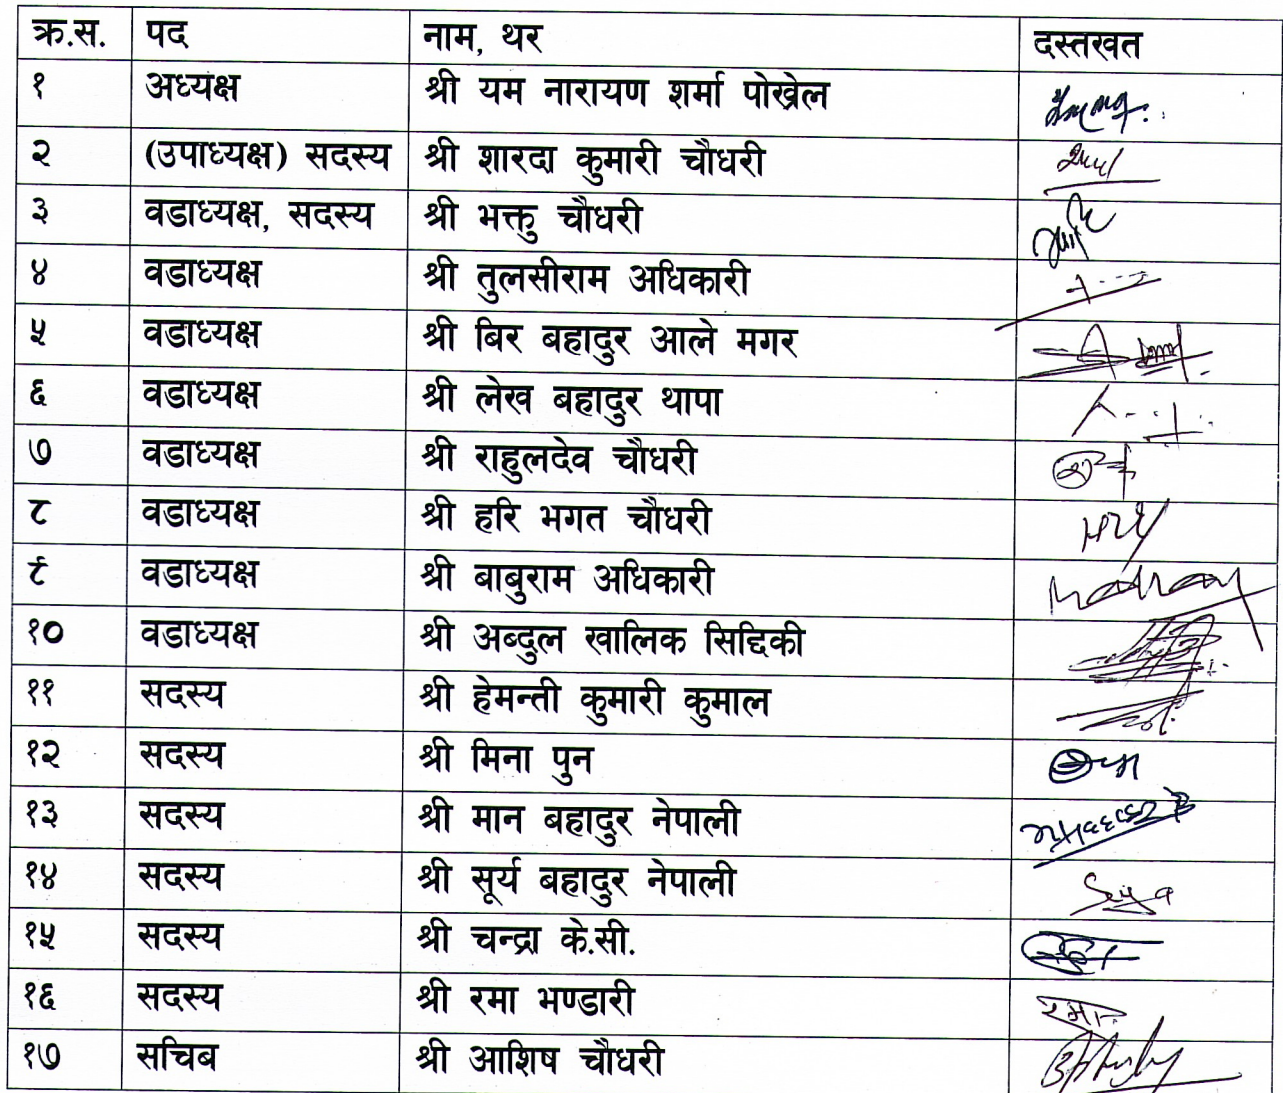 क्र.स. पद नाम, थर दस्तखत
१ अध्यक्ष श्री यम नारायण शर्मा पोख्रेल
२ (उपाध्यक्ष) सदस्य श्री शारदा कुमारी चौधरी
३ वडाध्यक्ष, सदस्य श्री भक्तु चौधरी
४ वडाध्यक्ष श्री तुलसीराम अधिकारी
५ वडाध्यक्ष श्री बिर बहादुर आले मगर
६ वडाध्यक्ष श्री लेख बहादुर थापा
७ वडाध्यक्ष श्री राहुलदेव चौधरी
८ वडाध्यक्ष श्री हरि भगत चौधरी
९ वडाध्यक्ष श्री बाबुराम अधिकारी
१० वडाध्यक्ष श्री अब्दुल खालिक सिद्दिकी
११ सदस्य श्री हेमन्ती कुमारी कुमाल
१२ सदस्य श्री मिना पुन
१३ सदस्य श्री मान बहादुर नेपाली
१४ सदस्य श्री सूर्य बहादुर नेपाली
१५ सदस्य श्री चन्द्रा के.सी.
१६ सदस्य श्री रमा भण्डारी
१७ सचिब श्री आशिष चौधरी